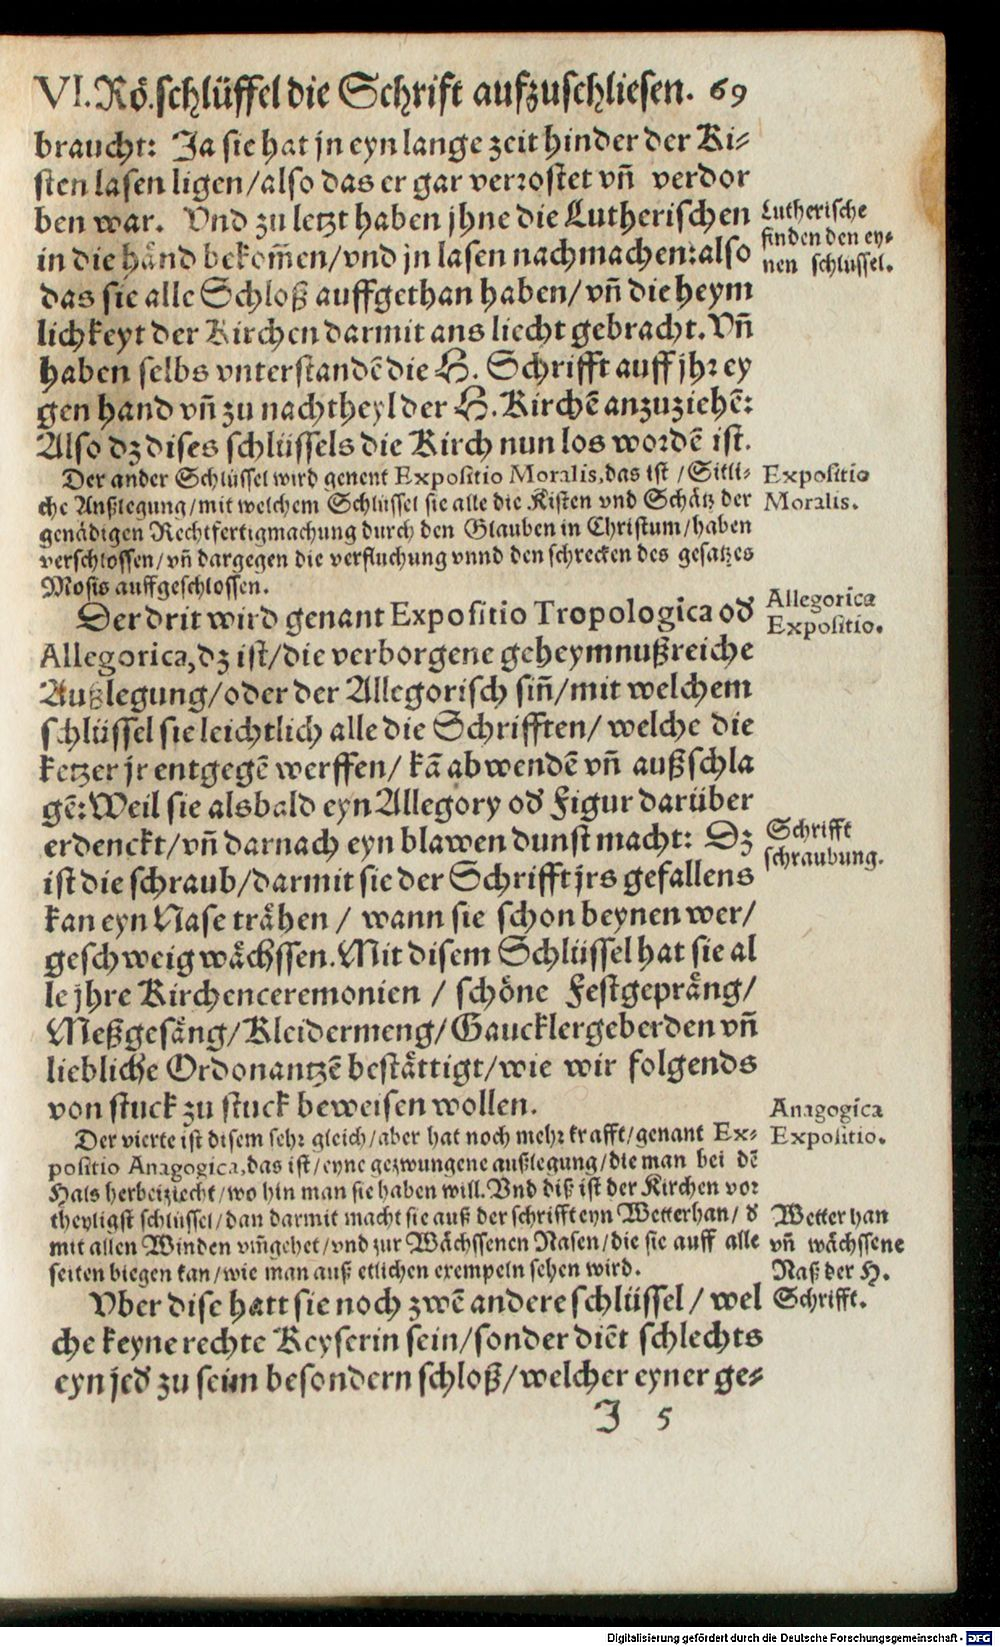 VI. Rö. schlüssel die Schrifft aufzuschliesen. 69
braucht: Ja sie hat jn eyn lange zeit hinder der Ki-
sten lasen ligen/also das er gar verrostet vñ verdor
ben war. Vnd zu letzt haben jhne die Lutherischen
in die händ bekom̃en/vnd jn lasen nachmachen: also
das sie alle Schloß auffgethan haben/ vñ die heym
lichkeyt der Kirchen darmit ans liecht gebracht. Vñ
haben selbs vnterstandē die H. Schrifft auff jhr ey
gen hand vñ zu nachtheyl der H. Kirchē anzuziehē:
Also dz dises schlüssels die Kirch nun los wordē ist.
Lutherische
finden den ey-
nen schlüssel.
Der ander Schlüssel wird genent Expositio Moralis, das ist / Sitli-
che Außlegung/mit welchem Schlüssel sie alle die Kisten vnd Schätz der
genädigen Rechtfertigmachung durch den Glauben in Christum/haben
verschlossen/vñ dargegen die verfluchung vnnd den schrecken des gesatzes
Mosis auffgeschlossen.
Expositio
Moralis.
Der drit wird genant Expositio Tropologica oď
Allegorica, dz ist/die verborgene geheymnußreiche
Außlegung/oder der Allegorisch siñ/mit welchem
schlüssel sie leichtlich alle die Schrifften/ welche die
ketzer jr entgegē werffen/ kā abwendē vñ außschla
gē: Weil sie alsbald eyn Allegory oď Figur darüber
erdenckt/vñ darnach eyn blawen dunst macht: Dz
ist die schraub/darmit sie der Schrifft jrs gefallens
kan eyn Nase trähen / wann sie schon beynen wer/
geschweig wächssen. Mit disem Schlüssel hat sie al
le jhre Kirchenceremonien / schöne Festgepräng/
Meßgesäng/Kleidermeng/Gaucklergeberden vñ
liebliche Ordonantzē bestättigt/wie wir folgends
von stuck zu stuck beweisen wollen.
Allegorica
Expositio.
Schrifft
schraubung.
Der vierte ist disem sehr gleich/aber hat noch mehr krafft/genant Ex-
positio Anagogica, das ist/eyne gezwungene außlegung/die man bei dē
Hals herbeiziecht/wo hin man sie haben will. Vnd diß ist der Kirchen vor
theyligst schlüssel/dan darmit macht sie auß der schrifft eyn Wetterhan/ ď
mit allen Winden vm̃gehet/vnd zur Wächssenen Nasen/die sie auff alle
seiten biegen kan/wie man auß etlichen exempeln sehen wird.
Anagogica
Expositio.
Wetter han
vñ wächssene
Naß der H.
Schrifft.
Vber dise hatt sie noch zwē andere schlüssel/ wel
che keyne rechte Keyserin sein/sonder diēt schlechts
eyn jeď zu seim besondern schloß/welcher eyner ge-
J 5
Digitalisierung gefördert durch die Deutsche Forschungsgemeinschaft - DFG